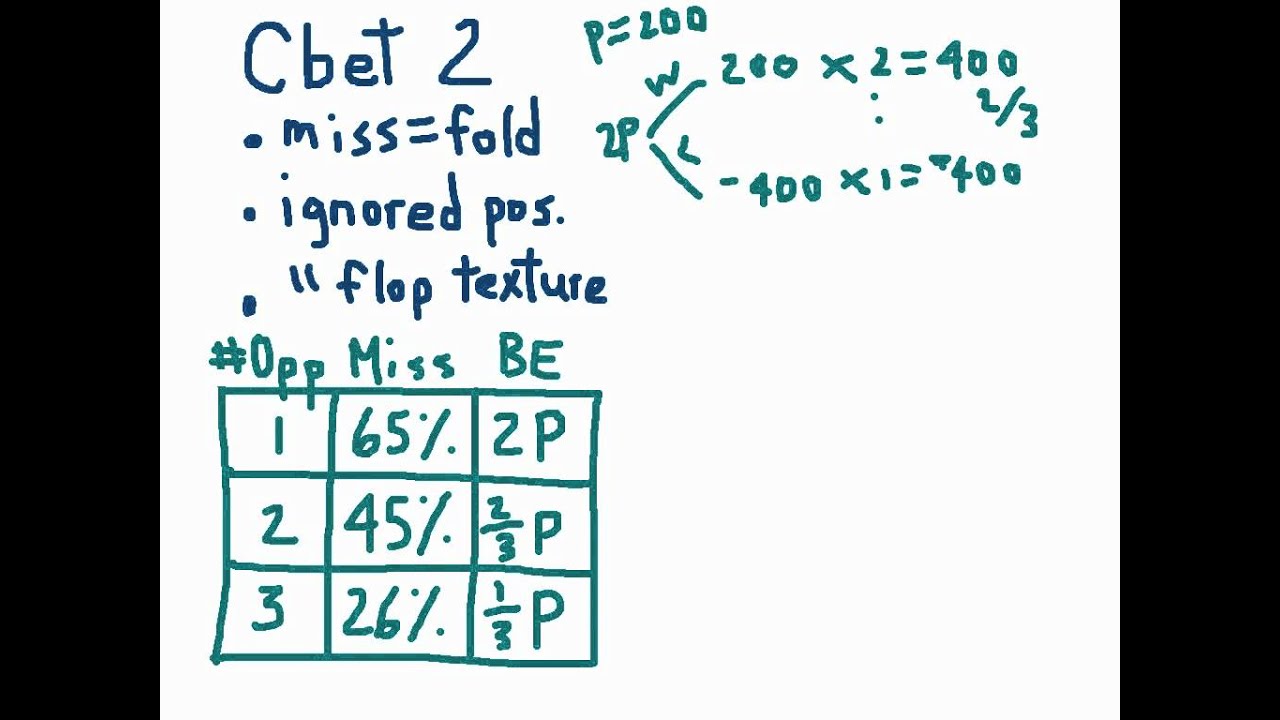 Cbet 2
• miss=fold
• ignored pos.
• " flop texture
P=200
2P
W 200 x 2 = 400
: 2/3
L -400 x 1 = -400
#Opp Miss BE
1 65% 2P
2 45% 2/3 P
3 26% 1/3 P